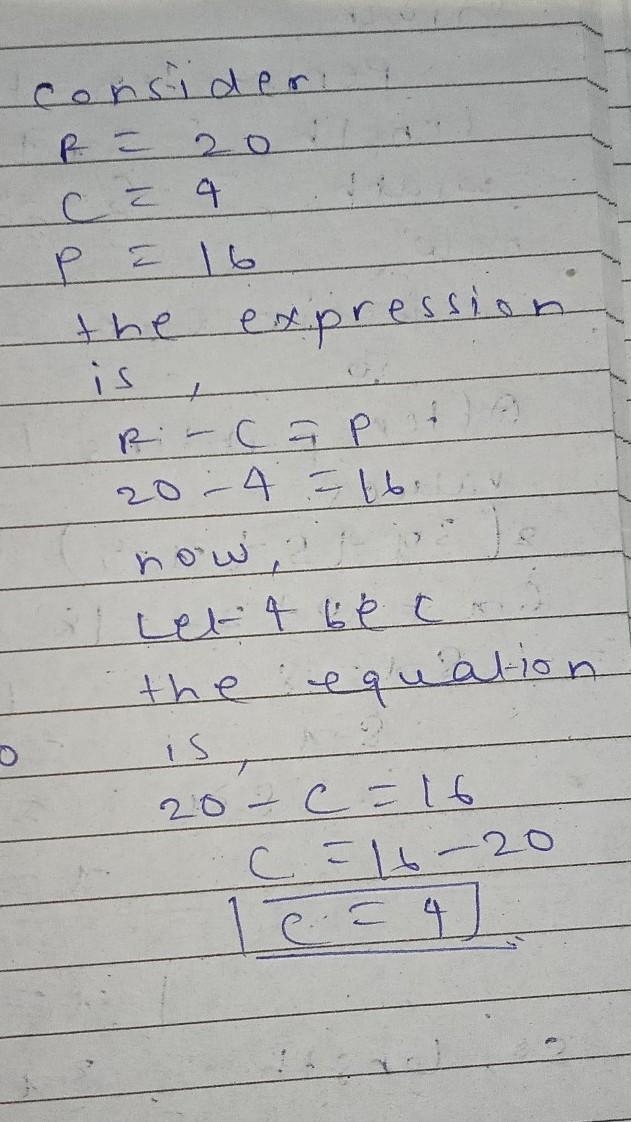 consider
R = 20
C = 4
P = 16
the expression
is,
R - C = P
20 - 4 = 16
now,
Let 4 be C
the equation
is,
20 - C = 16
C = 16 - 20
C = 4